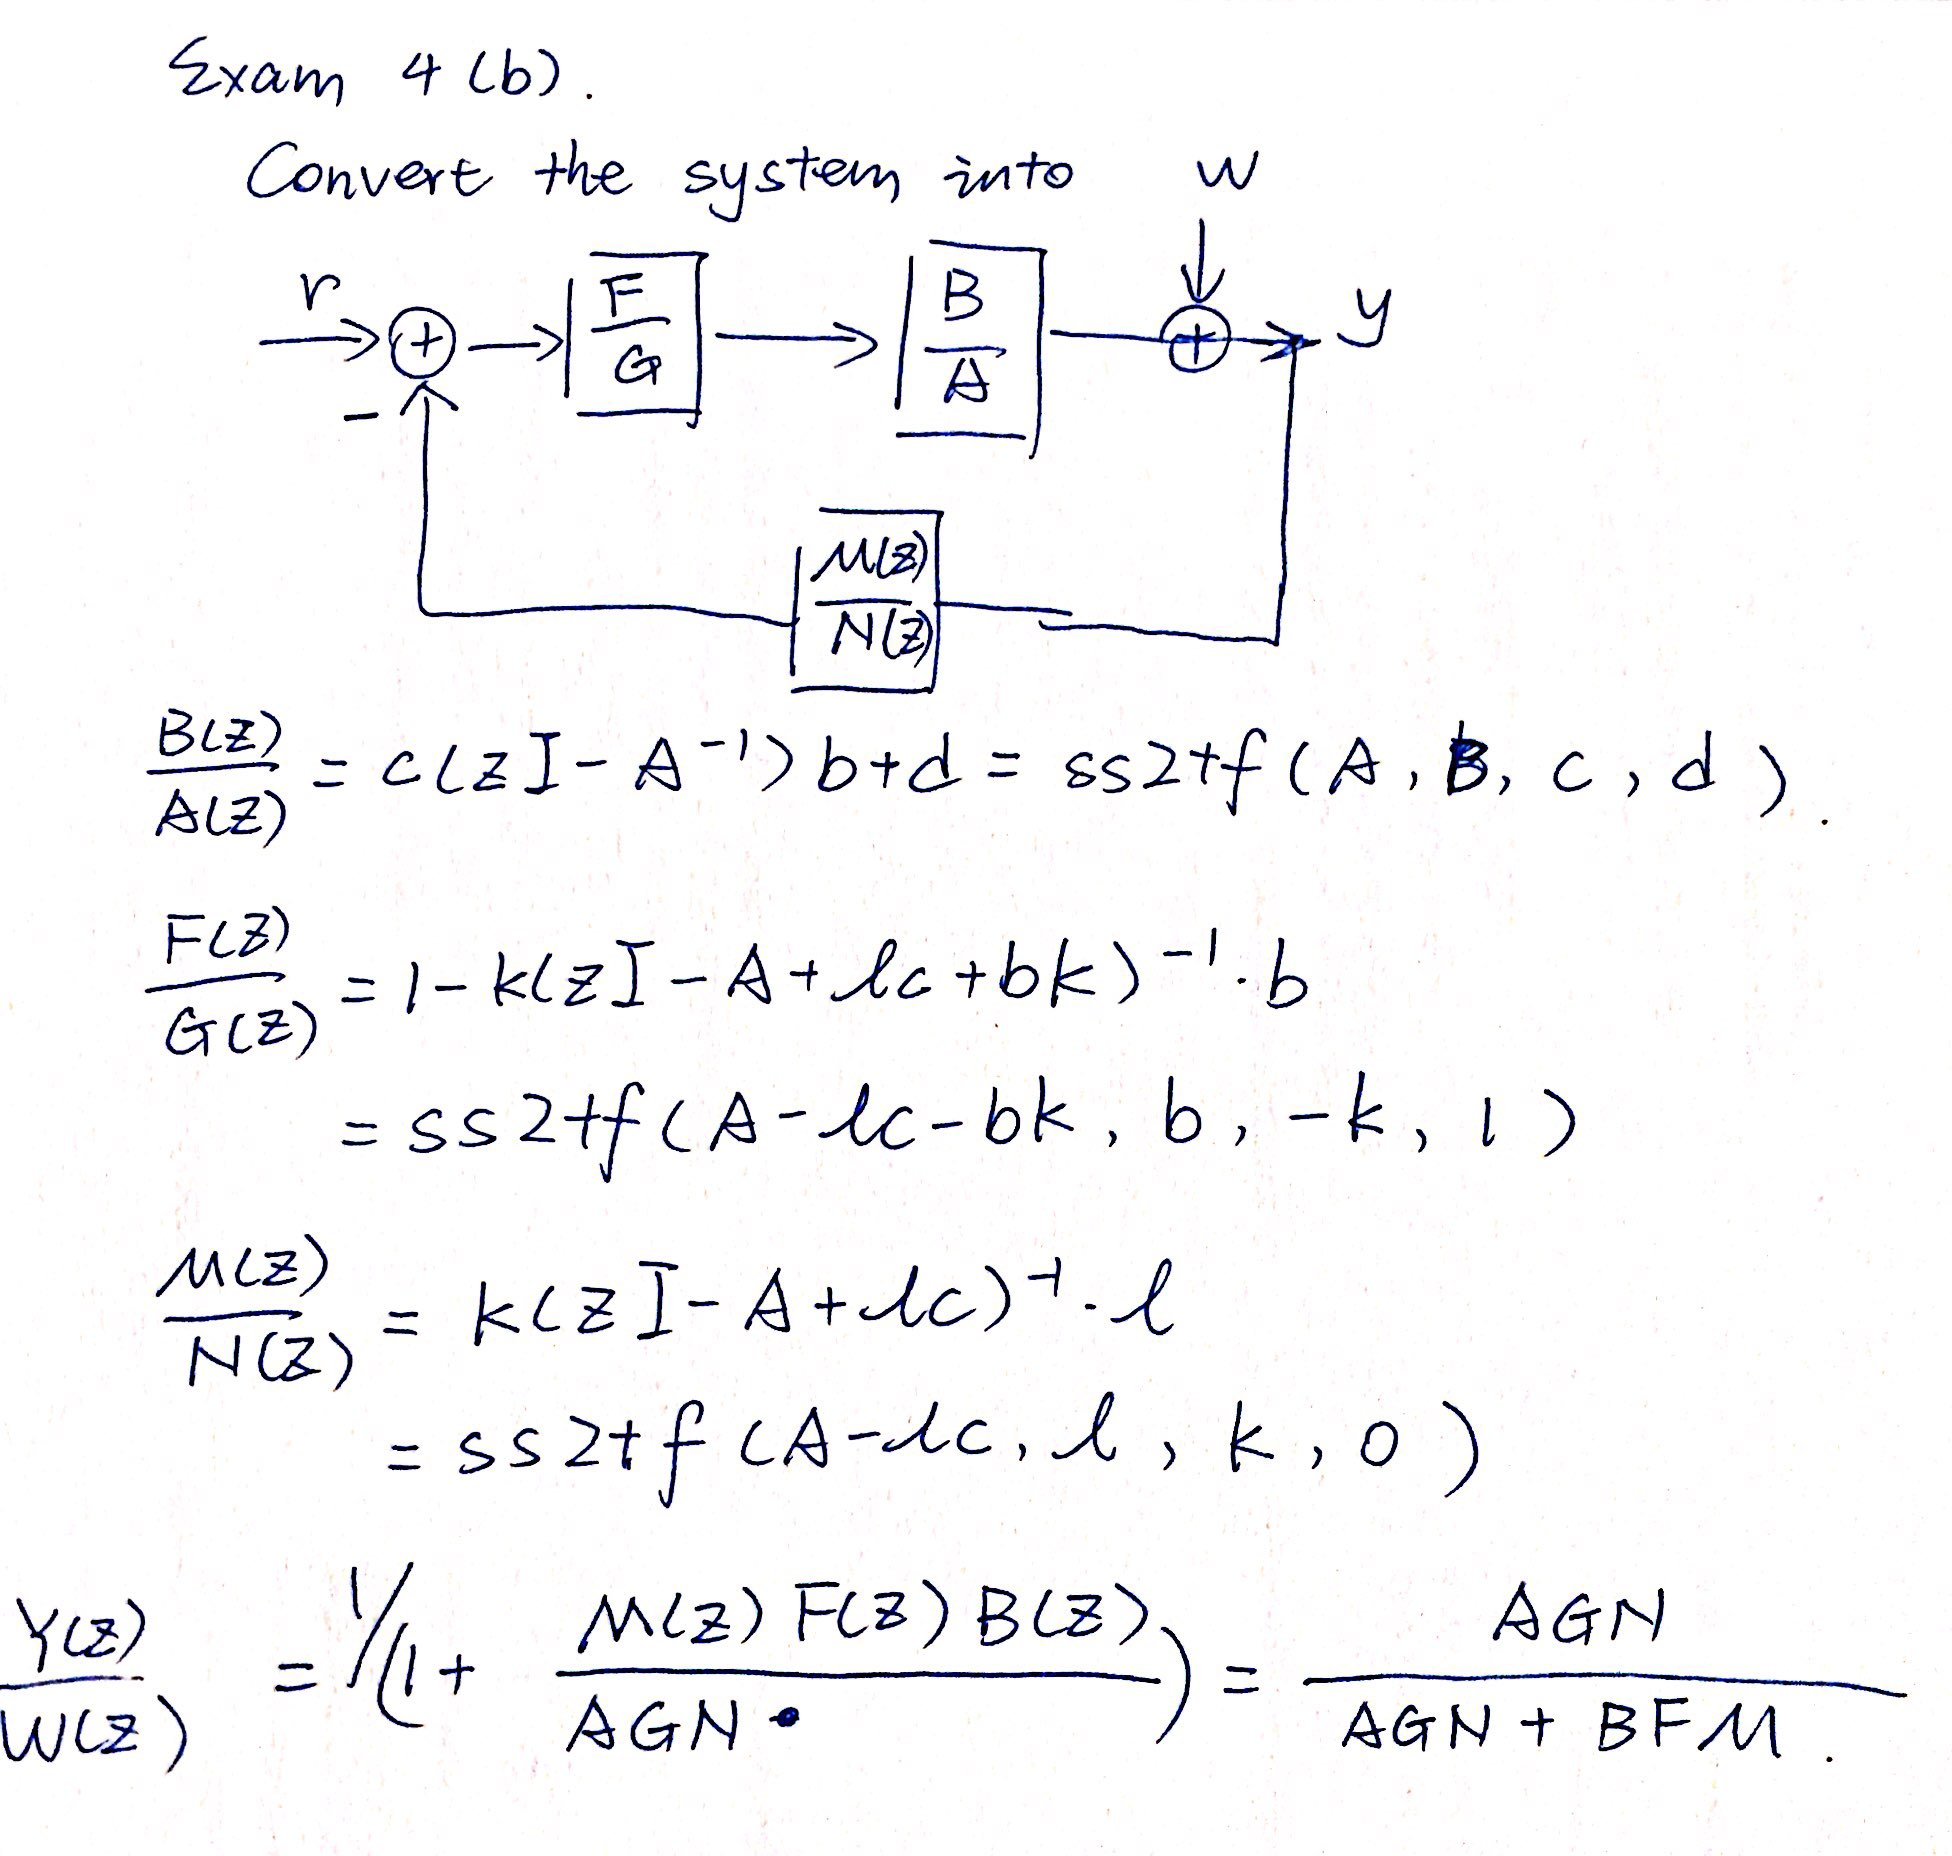 Exam 4 (b).
Convert the system into
w
r + F/G B/A + y
-
M(z)/N(z)
B(z)/A(z) = c(zI - A^-1) b+d = ss2tf (A, B, c, d).
F(z)/G(z) = 1 - k(zI - A + lc + bk)^-1 · b
= ss2tf (A - lc - bk, b, -k, 1)
M(z)/N(z) = k(zI - A + lc)^-1 · l
= ss2tf (A - lc, l, k, 0)
Y(z)/W(z) = 1/(1 + M(z) F(z) B(z)/AGN) = AGN/AGN + BFM.